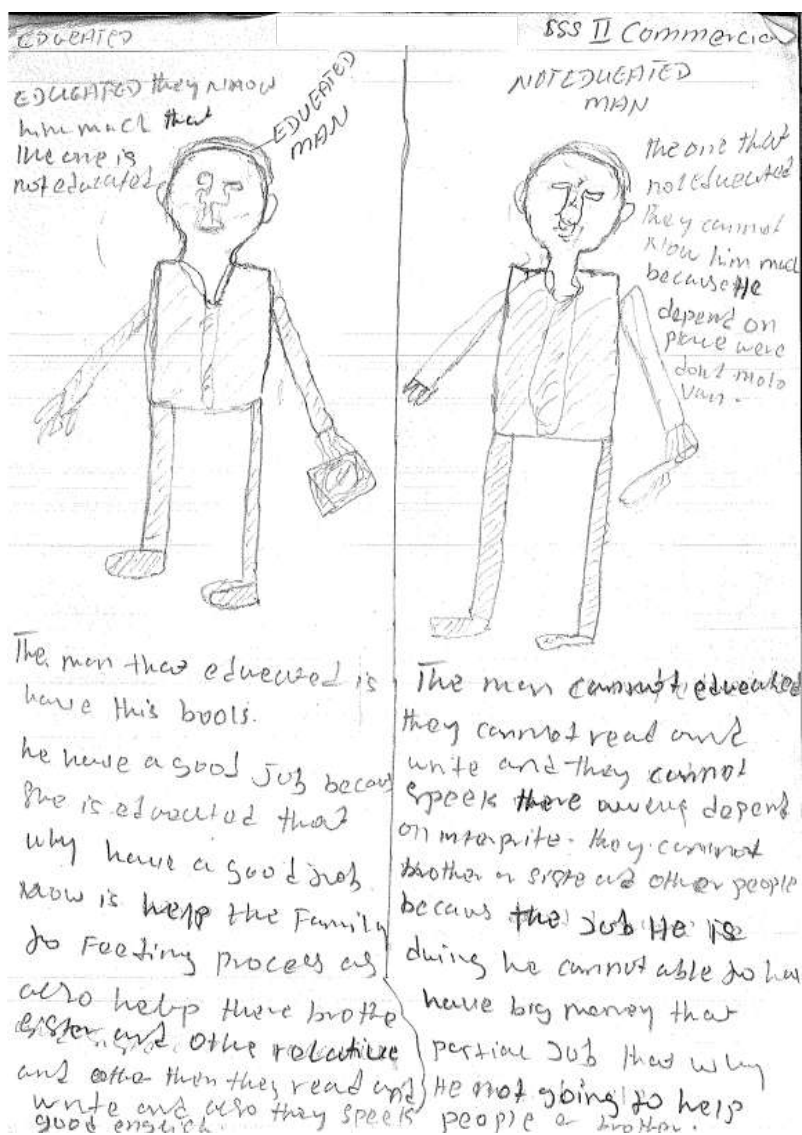 EDUCATED
SSS II Commercial
EDUCATED they know
him much that
the one is
not educated
EDUCATED
MAN
The man that educated is
have this books.
he have a good Job becaus
She is educated that
why have a good Job
now is help the Family
to Feeding process as
also help there brothe
sister and othe relative
and other then they read and
write and also they speek
good english.
NOT EDUCATED
MAN
the one that
not educated
they cannot
know him much
because He
depend on
place were
dont moto
van.
The man cannot educated
they cannot read and
write and they cannot
speek there depend
on interprite. they cannot
brother or siste and other people
becaus the Job He is
duing he cannot able to hav
have big money that
partial Job that why
He not going to help
people or brother.